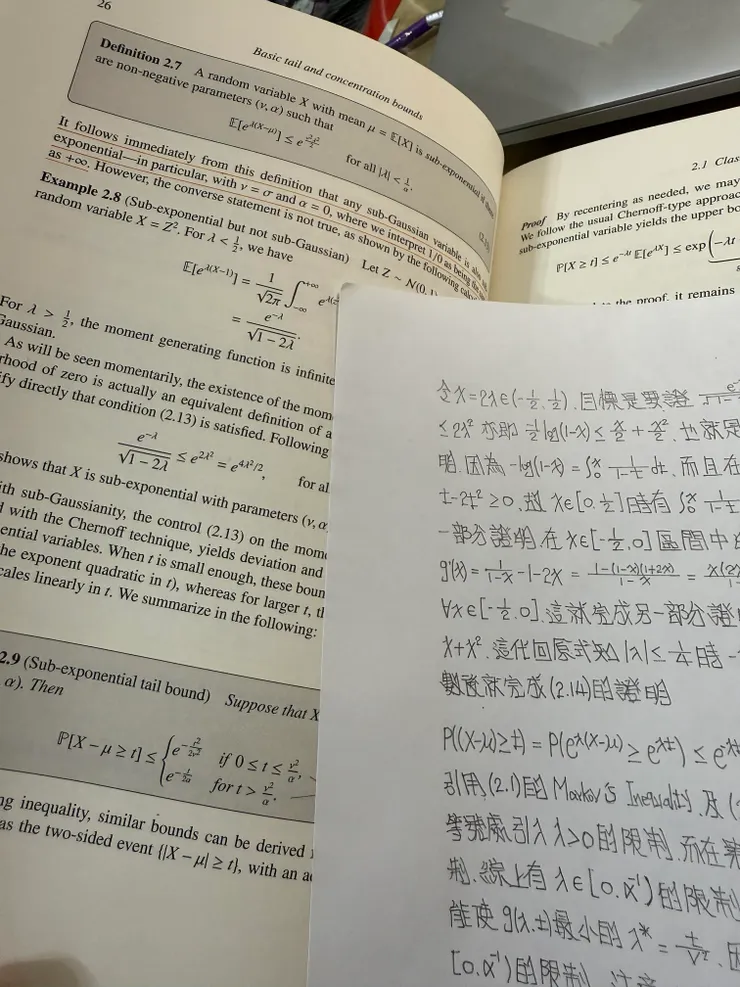 26
Basic tail and concentration bounds
Definition 2.7 A random variable X with mean μ = 𝔼[X] is sub-exponential if
are non-negative parameters (ν, α) such that
𝔼[e^{λ(X−μ)}] ≤ e^{ν²λ²/2} for all |λ| < 1/α.
It follows immediately from this definition that any sub-Gaussian variable is also
exponential—in particular, with ν = σ and α = 0, where we interpret 1/0 as being the
as +∞. However, the converse statement is not true, as shown by the following
Example 2.8 (Sub-exponential but not sub-Gaussian) Let Z ~ N(0, 1)
random variable X = Z². For λ < 1/2, we have
𝔼[e^{λ(X−1)}] = 1/√2π ∫_{−∞}^{+∞}
= e^{−λ}/√1 − 2λ.
For λ > 1/2, the moment generating function is infinite
Gaussian.
As will be seen momentarily, the existence of the
rhood of zero is actually an equivalent definition of a
ify directly that condition (2.13) is satisfied. Following
e^{−λ}/√1 − 2λ ≤ e^{2λ²} = e^{4λ²/2}, for
shows that X is sub-exponential with parameters (ν, α
ith sub-Gaussianity, the control (2.13) on the
d with the Chernoff technique, yields deviation and
ential variables. When t is small enough, these
he exponent quadratic in t), whereas for larger t,
cales linearly in t. We summarize in the following:
2.9 (Sub-exponential tail bound) Suppose that X
α). Then
ℙ[X − μ ≥ t] ≤ { e^{−t²/2ν²} if 0 ≤ t ≤ ν²/α,
e^{−t/2α} for t > ν²/α.
ng inequality, similar bounds can be derived
as the two-sided event {|X − μ| ≥ t}, with an
2.1
Proof By recentering as needed, we may
We follow the usual Chernoff-type
sub-exponential variable yields the upper
ℙ[X ≥ t] ≤ e^{−λt} 𝔼[e^{λX}] ≤ exp(−λt
the proof, it remains
令 x=2λ∈(-1/2, 1/2). 目標是要證
≤2λ² 亦即 -1/2 log(1-x) ≤ x/2 + x²/2. 也就是
明. 因為 -log(1-x) = ∫₀ˣ 1/(1-t) dt. 而且在
t-2t² ≥0, 故 x∈[0, 1/2] 時有 ∫₀ˣ
一部分證明. 在 x∈[-1/2, 0] 區間中
g'(x) = 1/(1-x) -1-2x = (1-(1-x)(1+2x))/(1-x) =
∀x∈[-1/2, 0]. 這就完成另一部分證
x+x². 這代回原式知 |λ| ≤ 1/4 時
數後就完成(2.14)的證明
P((X-μ)≥t) = P(e^{λ(X-μ)} ≥ e^{λt}) ≤
引用(2.1)的 Markov's Inequality 及
等號處引入 λ>0 的限制. 而在
制. 綜上有 λ∈[0, α⁻¹) 的限制
能使 g(λ,t) 最小的 λ* = t/ν².
[0, α⁻¹) 的限制